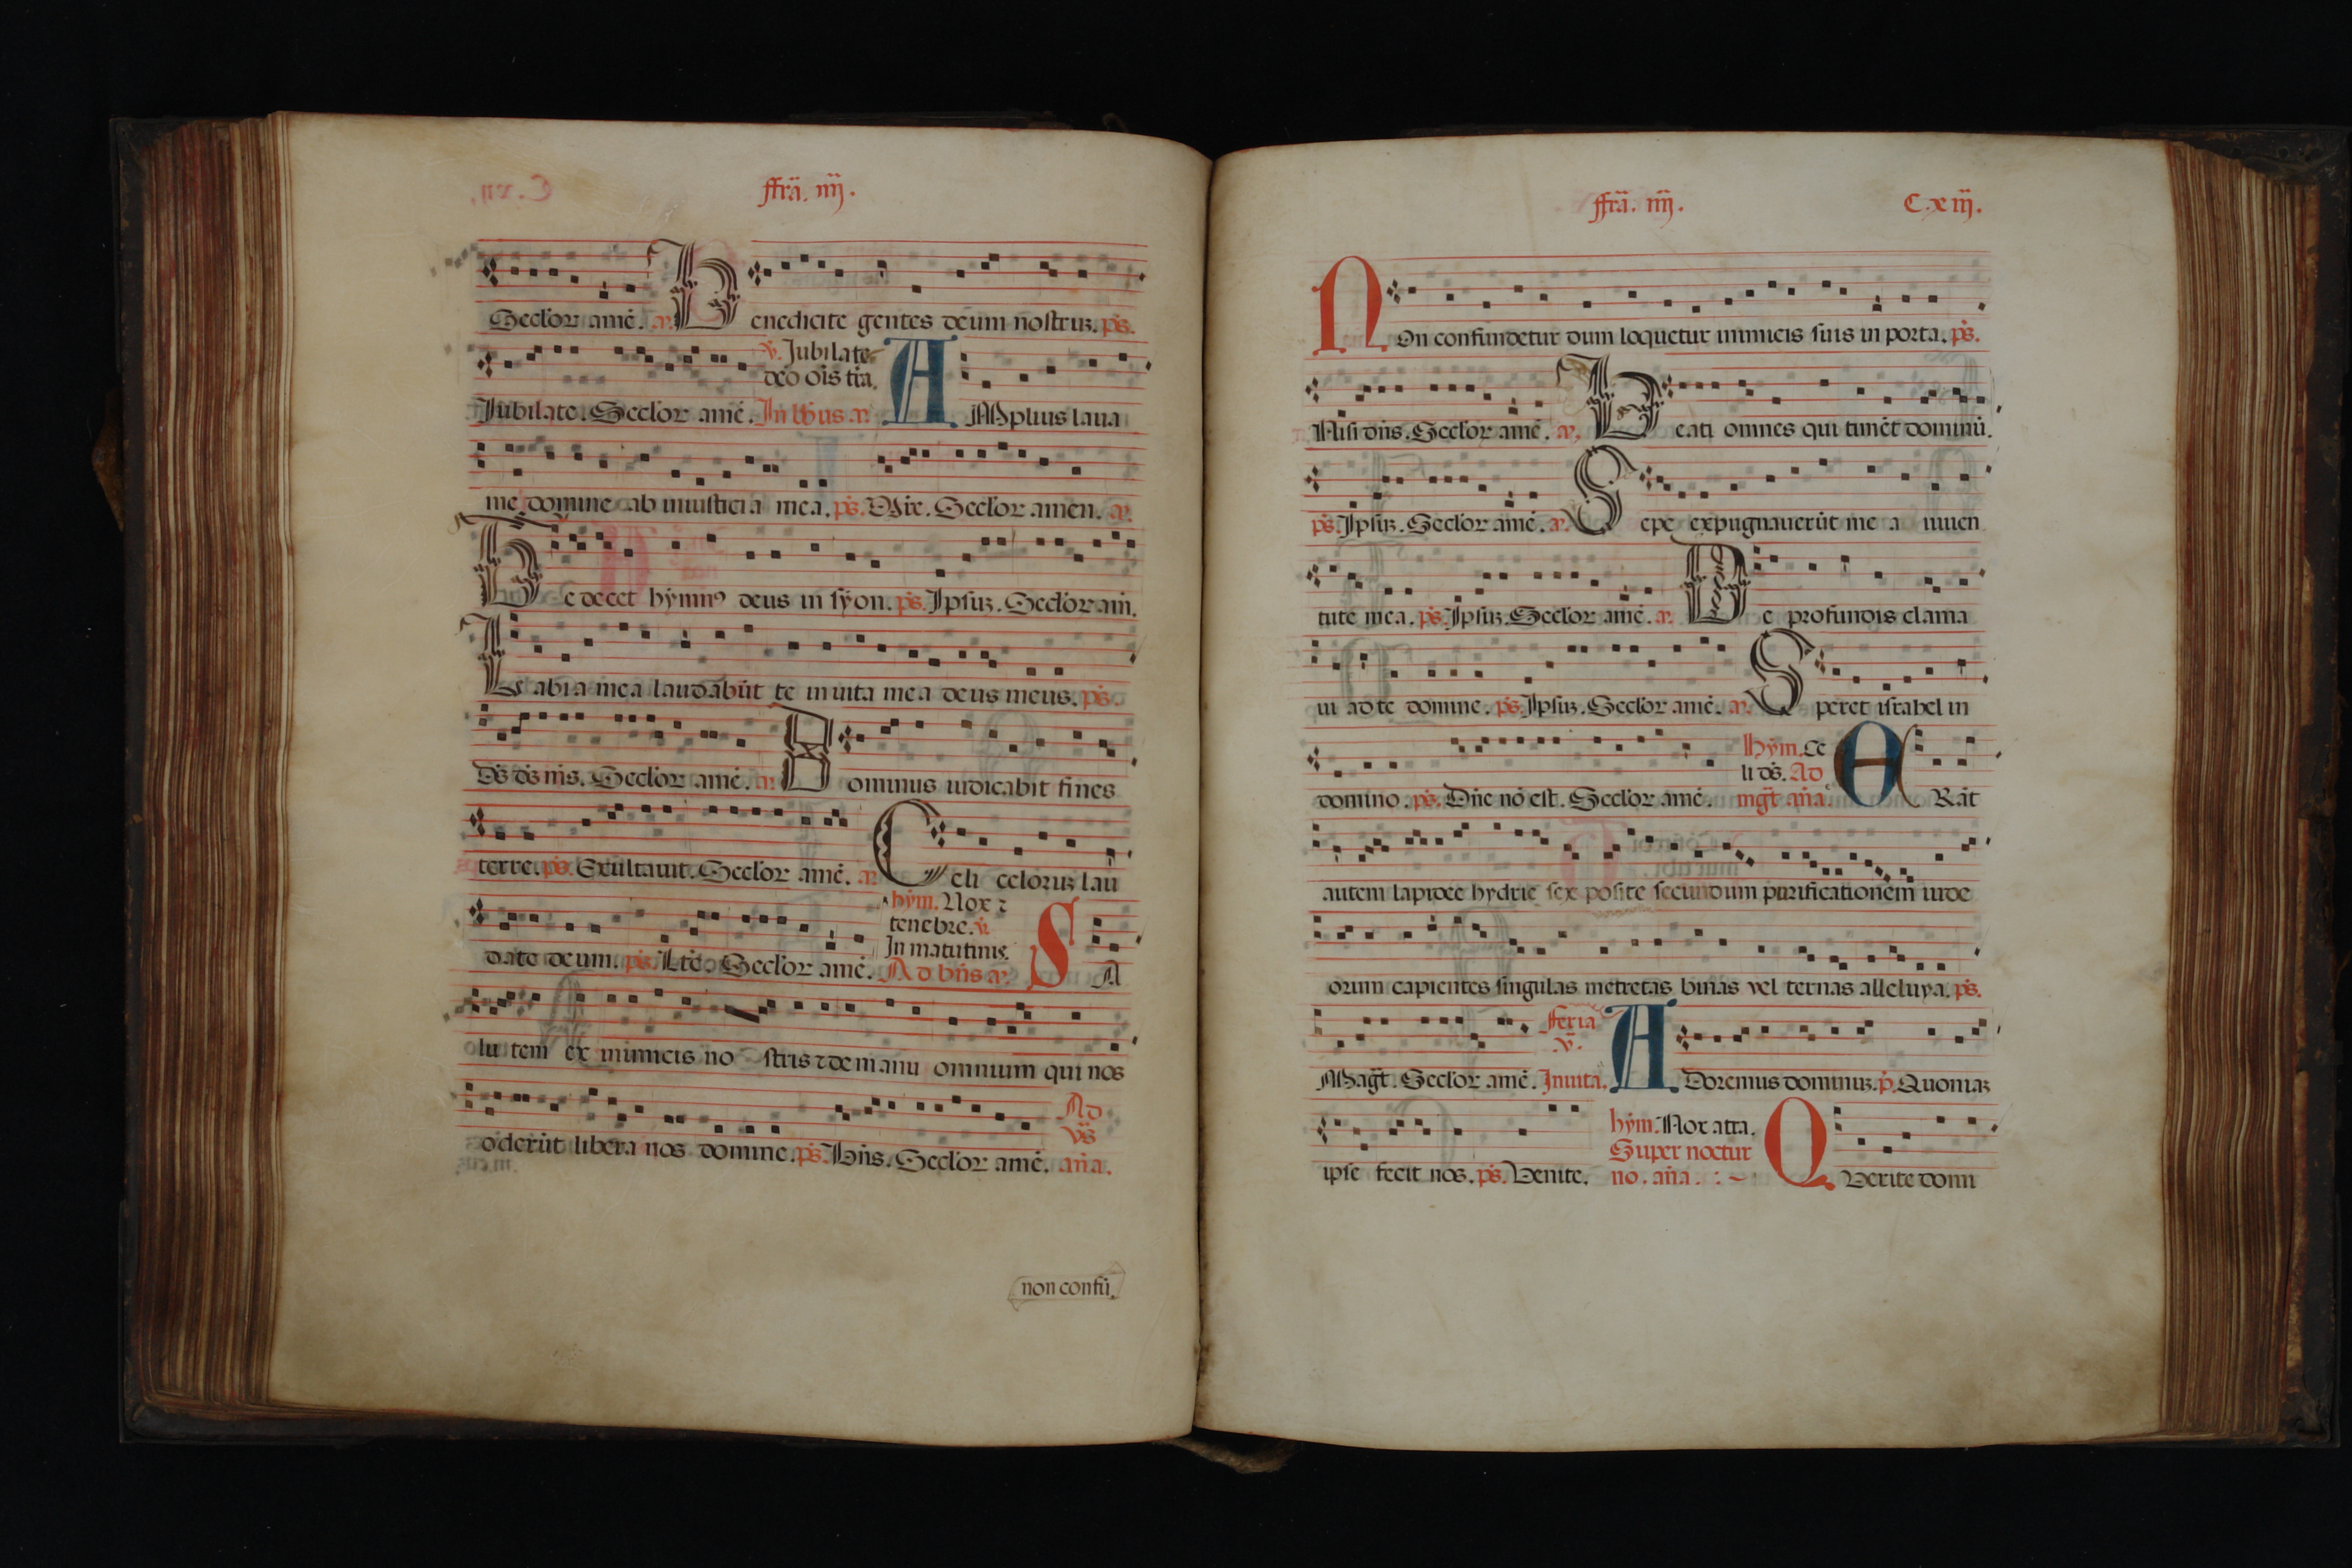 ffrā. iiij.
Seclor amē. a. Benedicite gentes deum nostrū. ps.
v. Jubilate
deo ois tra.
Iubilate. Seclor amē. In lbūs a. AMplius laua
me domine ab iniusticia mea. ps. Mire. Seclor amen. a.
Te decet hymnꝰ deus in syon. ps. Ipsuꝫ. Seclor am.
Labia mea laudabūt te in uita mea deus meus. ps.
Ds ds ms. Seclor amē. a. Dominus iudicabit fines
terre. ps. Exultauit. Seclor amē. a. Celi celoruꝫ lau
hȳm. Nox ⁊
tenebre. v.
In matutinis.
date deum. ps. Lte. Seclor amē. Ad bn̄s a. SA
lu tem ex inimicis no stris ⁊ de manu omnium qui nos
Ad
vs̄
oderūt libera nos domine. ps. Bn̄s. Seclor amē. an̄a.
non confū.
ffrā. iiij. C.xiij.
NOn confundetur dum loquetur inimicis suis in porta. ps.
Nisi dn̄s. Seclor amē. a. Beati omnes qui timēt dominū.
ps. Ipsuꝫ. Seclor amē. a. Sepe expugnauerūt me a iuuen
tute mea. ps. Ipsuꝫ. Seclor amē. a. De profundis clama
ui ad te domine. ps. Ipsuꝫ. Seclor amē. a. Speret israhel in
hȳm. Ce
li ds. Ad
domino. ps. Dn̄e nō est. Seclor amē. mgt̄ an̄a. ERāt
autem lapidee hydrie sex posite secundum purificationem iude
orum capientes singulas metretas binas vel ternas alleluya. ps.
fferia
v.
Magt̄. Seclor amē. Inuita. ADoremus dominuꝫ. p. Quoniaꝫ
ipse fecit nos. ps. Venite.
hȳm. Nox atra.
Super noctur
no. an̄a. QVerite domi